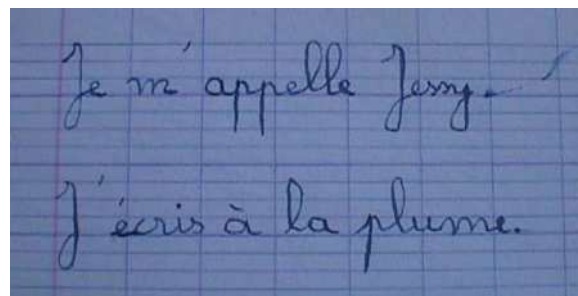 Je m'appelle Jessy.
J'écris à la plume.